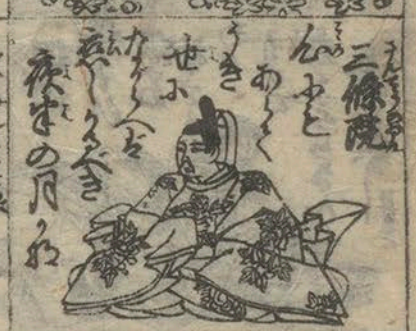 三條院
心にも
あらで
うき
世に
ながらへば
恋しかるべき
夜半の月かな